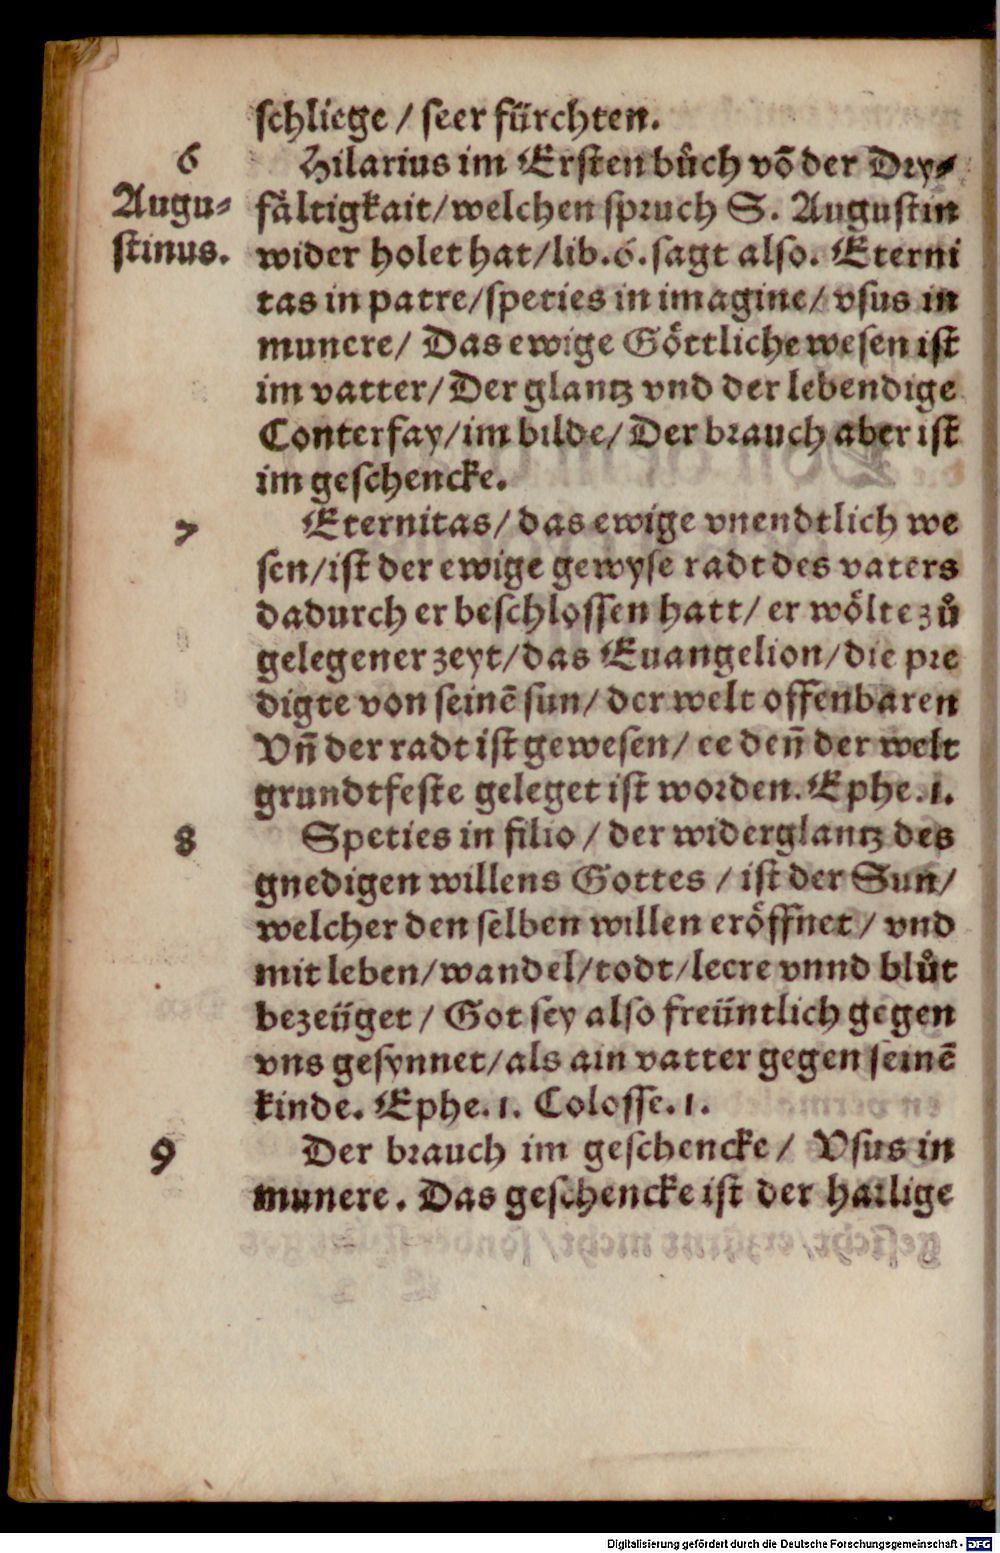 schliege / seer fürchten.
6
Hilarius im Ersten bůch võ der Dry⸗
Augu⸗
fältigkait/welchen spruch S. Augustin
stinus.
wider holet hat/lib.6.sagt also. Eterni
tas in patre/speties in imagine/ vsus in
munere/ Das ewige Göttliche wesen ist
im vatter/Der glantz vnd der lebendige
Conterfay/im bilde/Der brauch aber ist
im geschencke.
7
Eternitas/ das ewige vnendtlich we
sen/ist der ewige gewyse radt des vaters
dadurch er beschlossen hatt/ er wölte zů
gelegener zeyt/das Euangelion/die pre
digte von seinē sun/ der welt offenbaren
Vñ der radt ist gewesen/ ee deñ der welt
grundtfeste geleget ist worden. Ephe.1.
8
Speties in filio / der widerglantz des
gnedigen willens Gottes / ist der Sun/
welcher den selben willen eröffnet / vnd
mit leben/wandel/todt/leere vnnd blůt
bezeüget / Got sey also freüntlich gegen
vns gesynnet/als ain vatter gegen seinē
kinde. Ephe.1. Colosse.1.
9
Der brauch im geschencke/ Vsus in
munere. Das geschencke ist der hailige
Digitalisierung gefördert durch die Deutsche Forschungsgemeinschaft - DFG